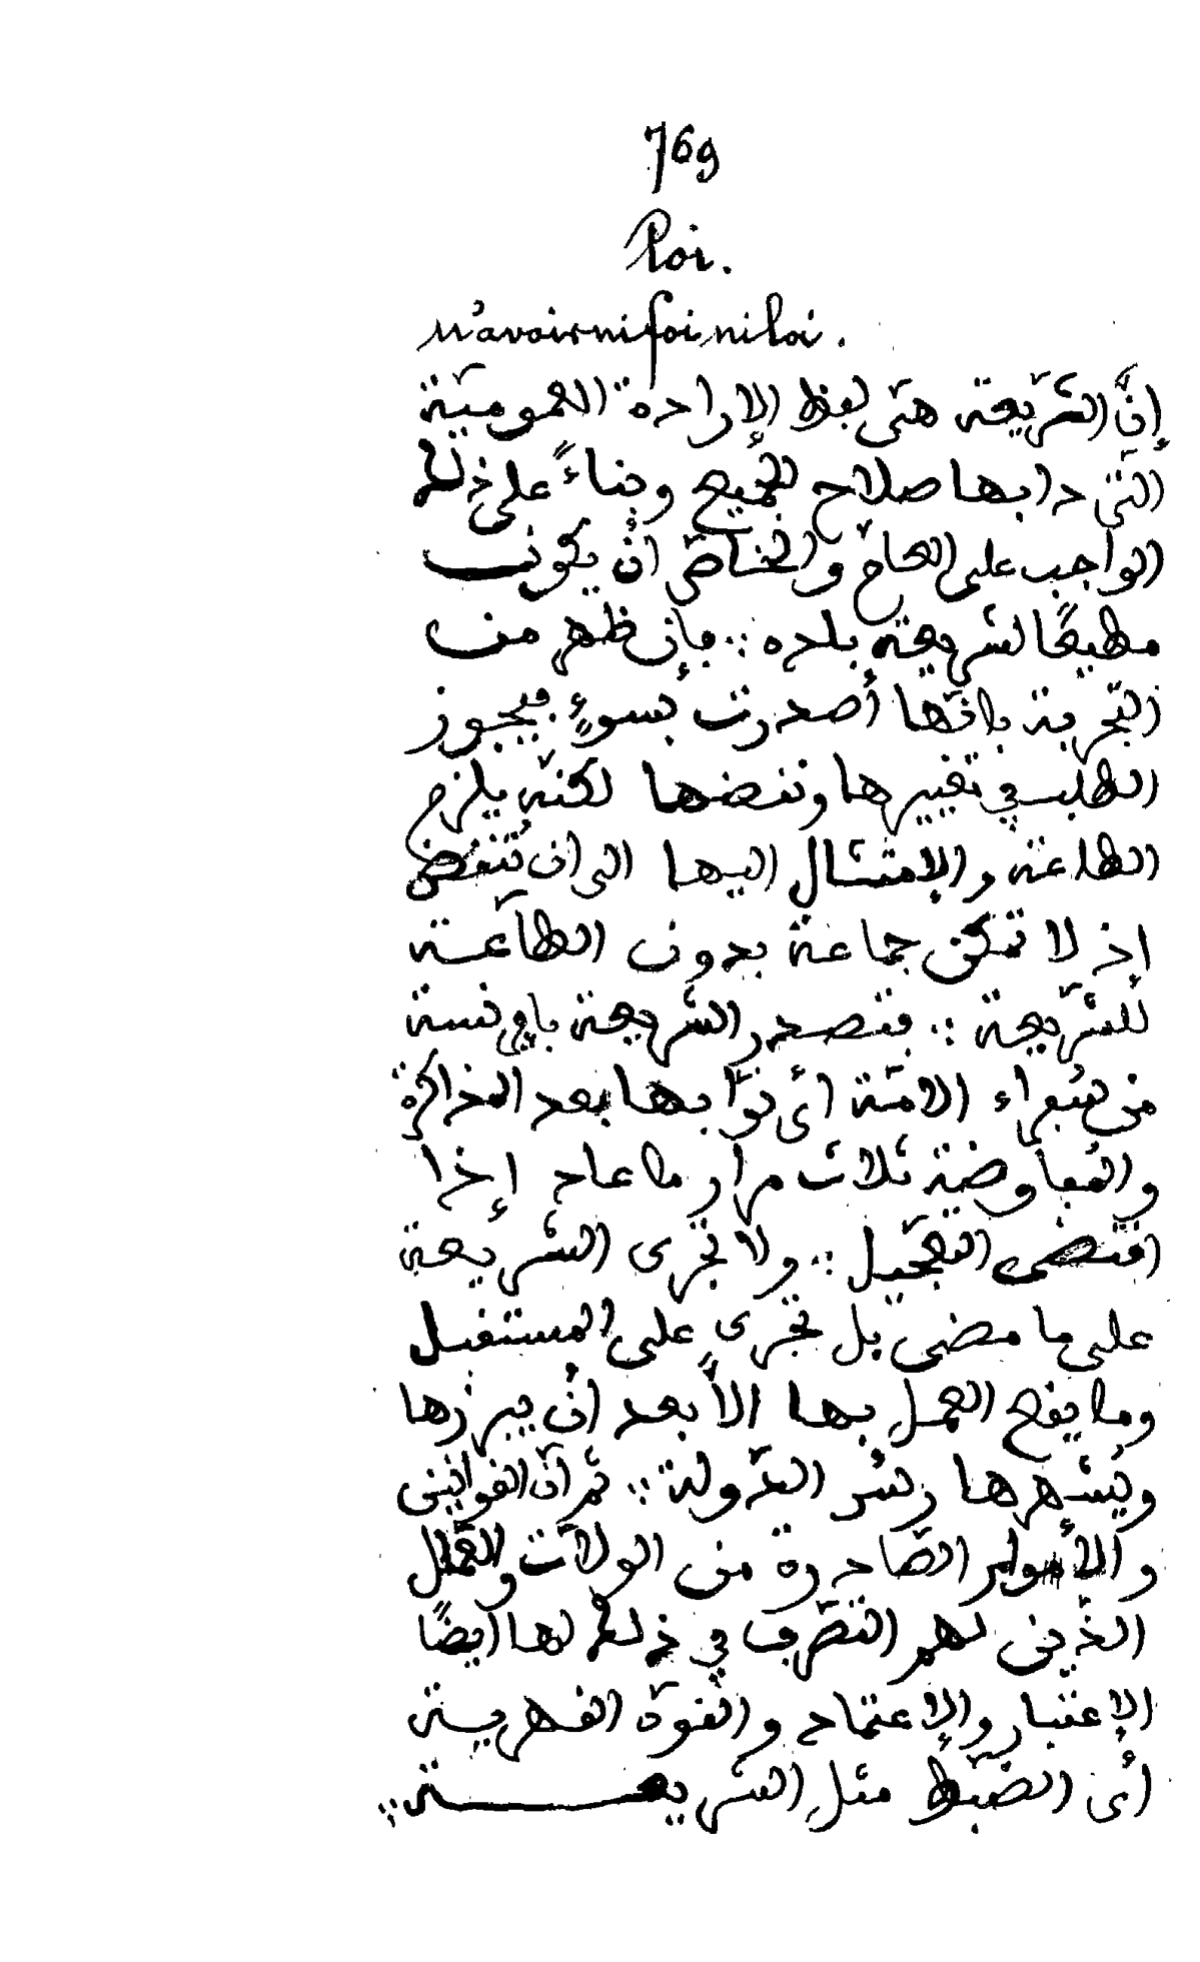 769
Loi.
N'avoir ni foi ni loi.
إنَّ الشّريعة هي لفظ الإرادة العموميّة
التي دابها صلاح الجميع وبناءً على ذلك
الواجب على العامّ والخاصّ أن يكون
مطيعًا لشريعة بلده ∴ فإن ظهر من
التجربة بانّها أصدرت بسوءٍ فيجوز
الطلب في تغييرها ونفضها لكنّه يلزم
الطاعة والإمتثال اليها الى ان تُنفض
إذ لا تمكن جماعة بدون الطّاعة
للشّريعة ∴ فتصدر الشريعة
من الامّة أي نوّابها بعد المذاكرة
والمُفاوضة ثلاث مرار ما عاد إذا
اقتضى التعجيل ∴ ولا تجرى الشريعة
على ما مضى بل تجرى على المستقبل
وما يقع العمل بها الاّ بعد أن يبرزها
ويُشهرها الدّولة ∴ ثم انّ القوانين
والأموامر الصّادرة من الولاّت والعمّال
الذّين لهم التصّرف في ذلك لها ايضًا
الإعتبار والإعتماد والقوّة القهريّة
أي الضّبط مثل الشريعة ∴